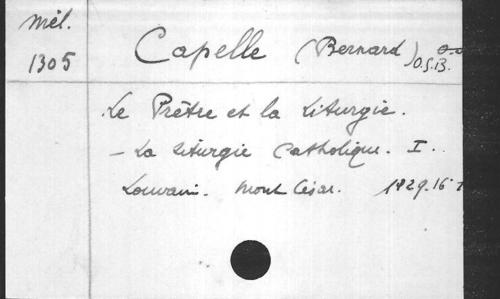 Mél.
1305
Capelle (Bernard) O.S.B.
Le Prêtre et la Liturgie.
- La Liturgie Catholique. I.
Louvain. Mont César. 1929. 16